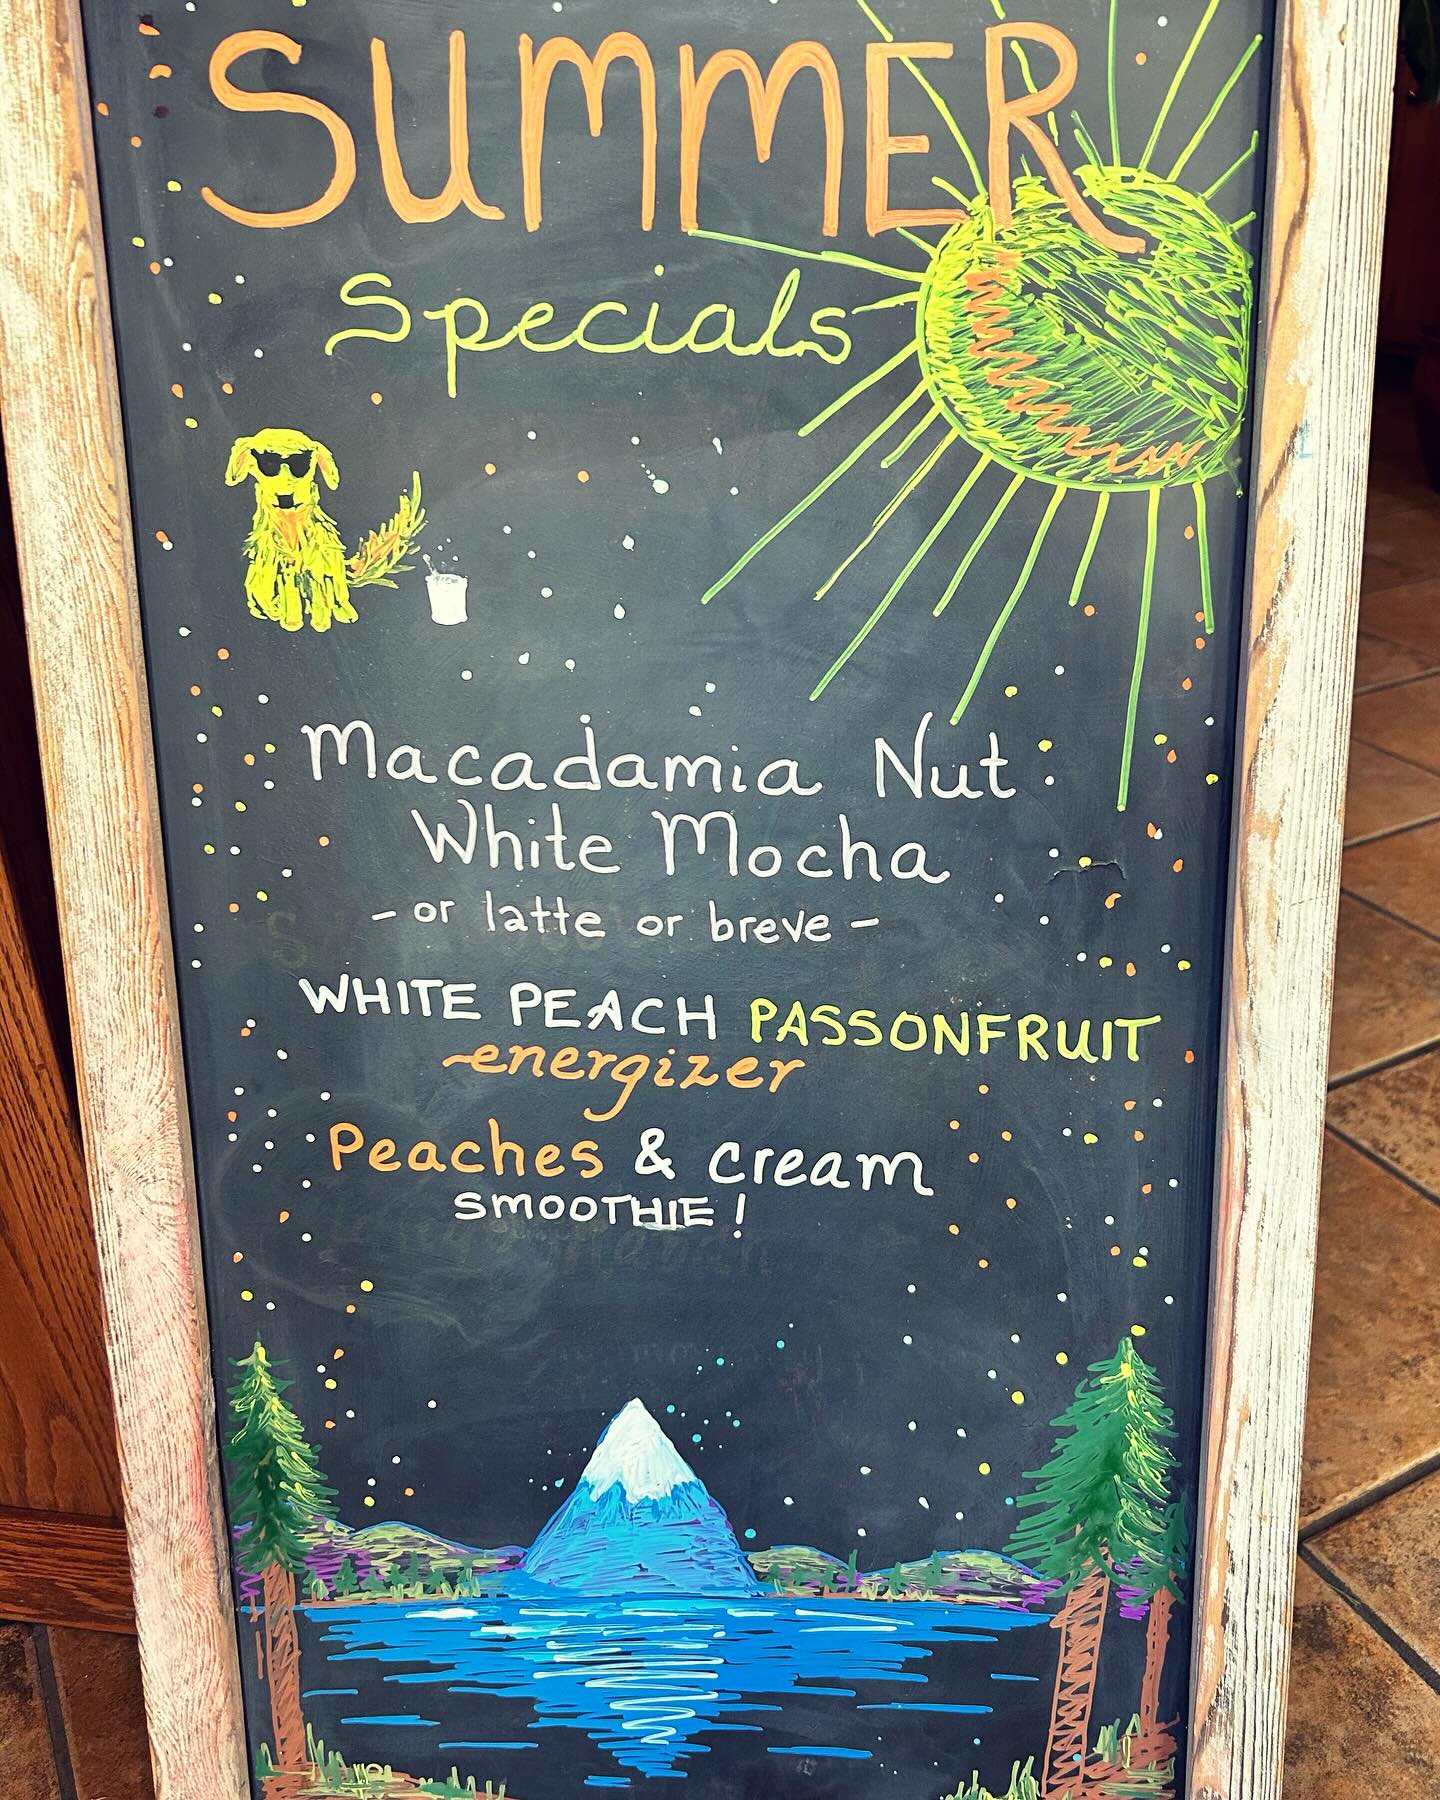 SUMMER
Specials
Macadamia Nut
White Mocha
- or latte or breve -
WHITE PEACH PASSONFRUIT
~energizer
Peaches & cream
SMOOTHIE!